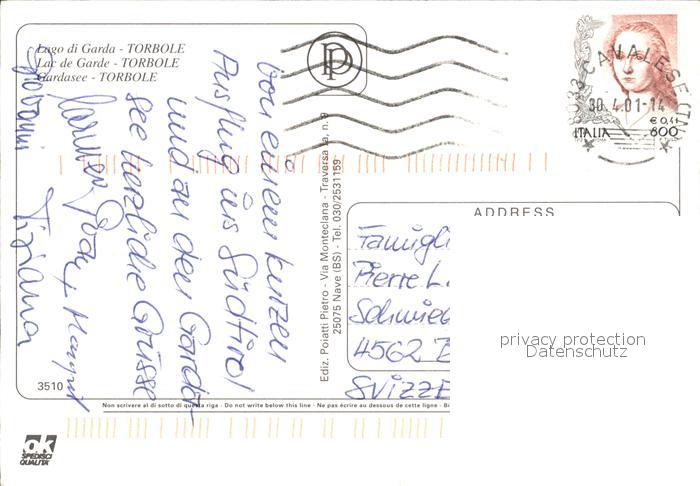 Lago di Garda - TORBOLE
Lac de Garde - TORBOLE
Gardasee - TORBOLE
von einem kurzen
Ausflug ins Südtirol
und an den Garda-
see herzliche Grüsse
Tiziana
Giovanni
3510
Ediz. Poiatti Pietro - Via Monteclana - Traversa 1a, n. 9
25075 Nave (BS) - Tel. 030/2531159
CAVALESE
30.4.01-14
ITALIA
€ 0,41
800
ADDRESS
Famigli
Pierre L.
Schmied
4562 B
SVIZZE
privacy protection
Datenschutz
Non scrivere al di sotto di questa riga - Do not write below this line - Ne pas écrire au dessous de cette ligne - Bi
ok
SPEDISCI
QUALITÀ